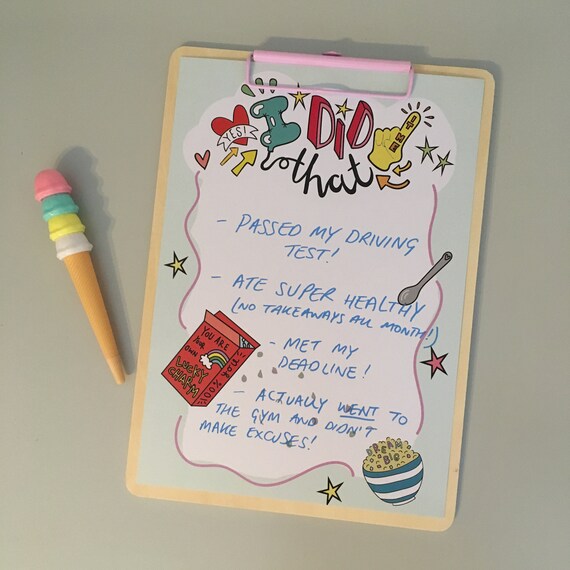 YES!
I DID
IT ME
that
- PASSED MY DRIVING
TEST!
- ATE SUPER HEALTHY
(NO TAKEAWAYS ALL MONTH!)
- MET MY
DEADLINE!
- ACTUALLY WENT TO
THE GYM AND DIDN'T
MAKE EXCUSES!
YOU ARE
YOUR
OWN
LUCKY
CHARM
100% YOU
DREAM
BIG